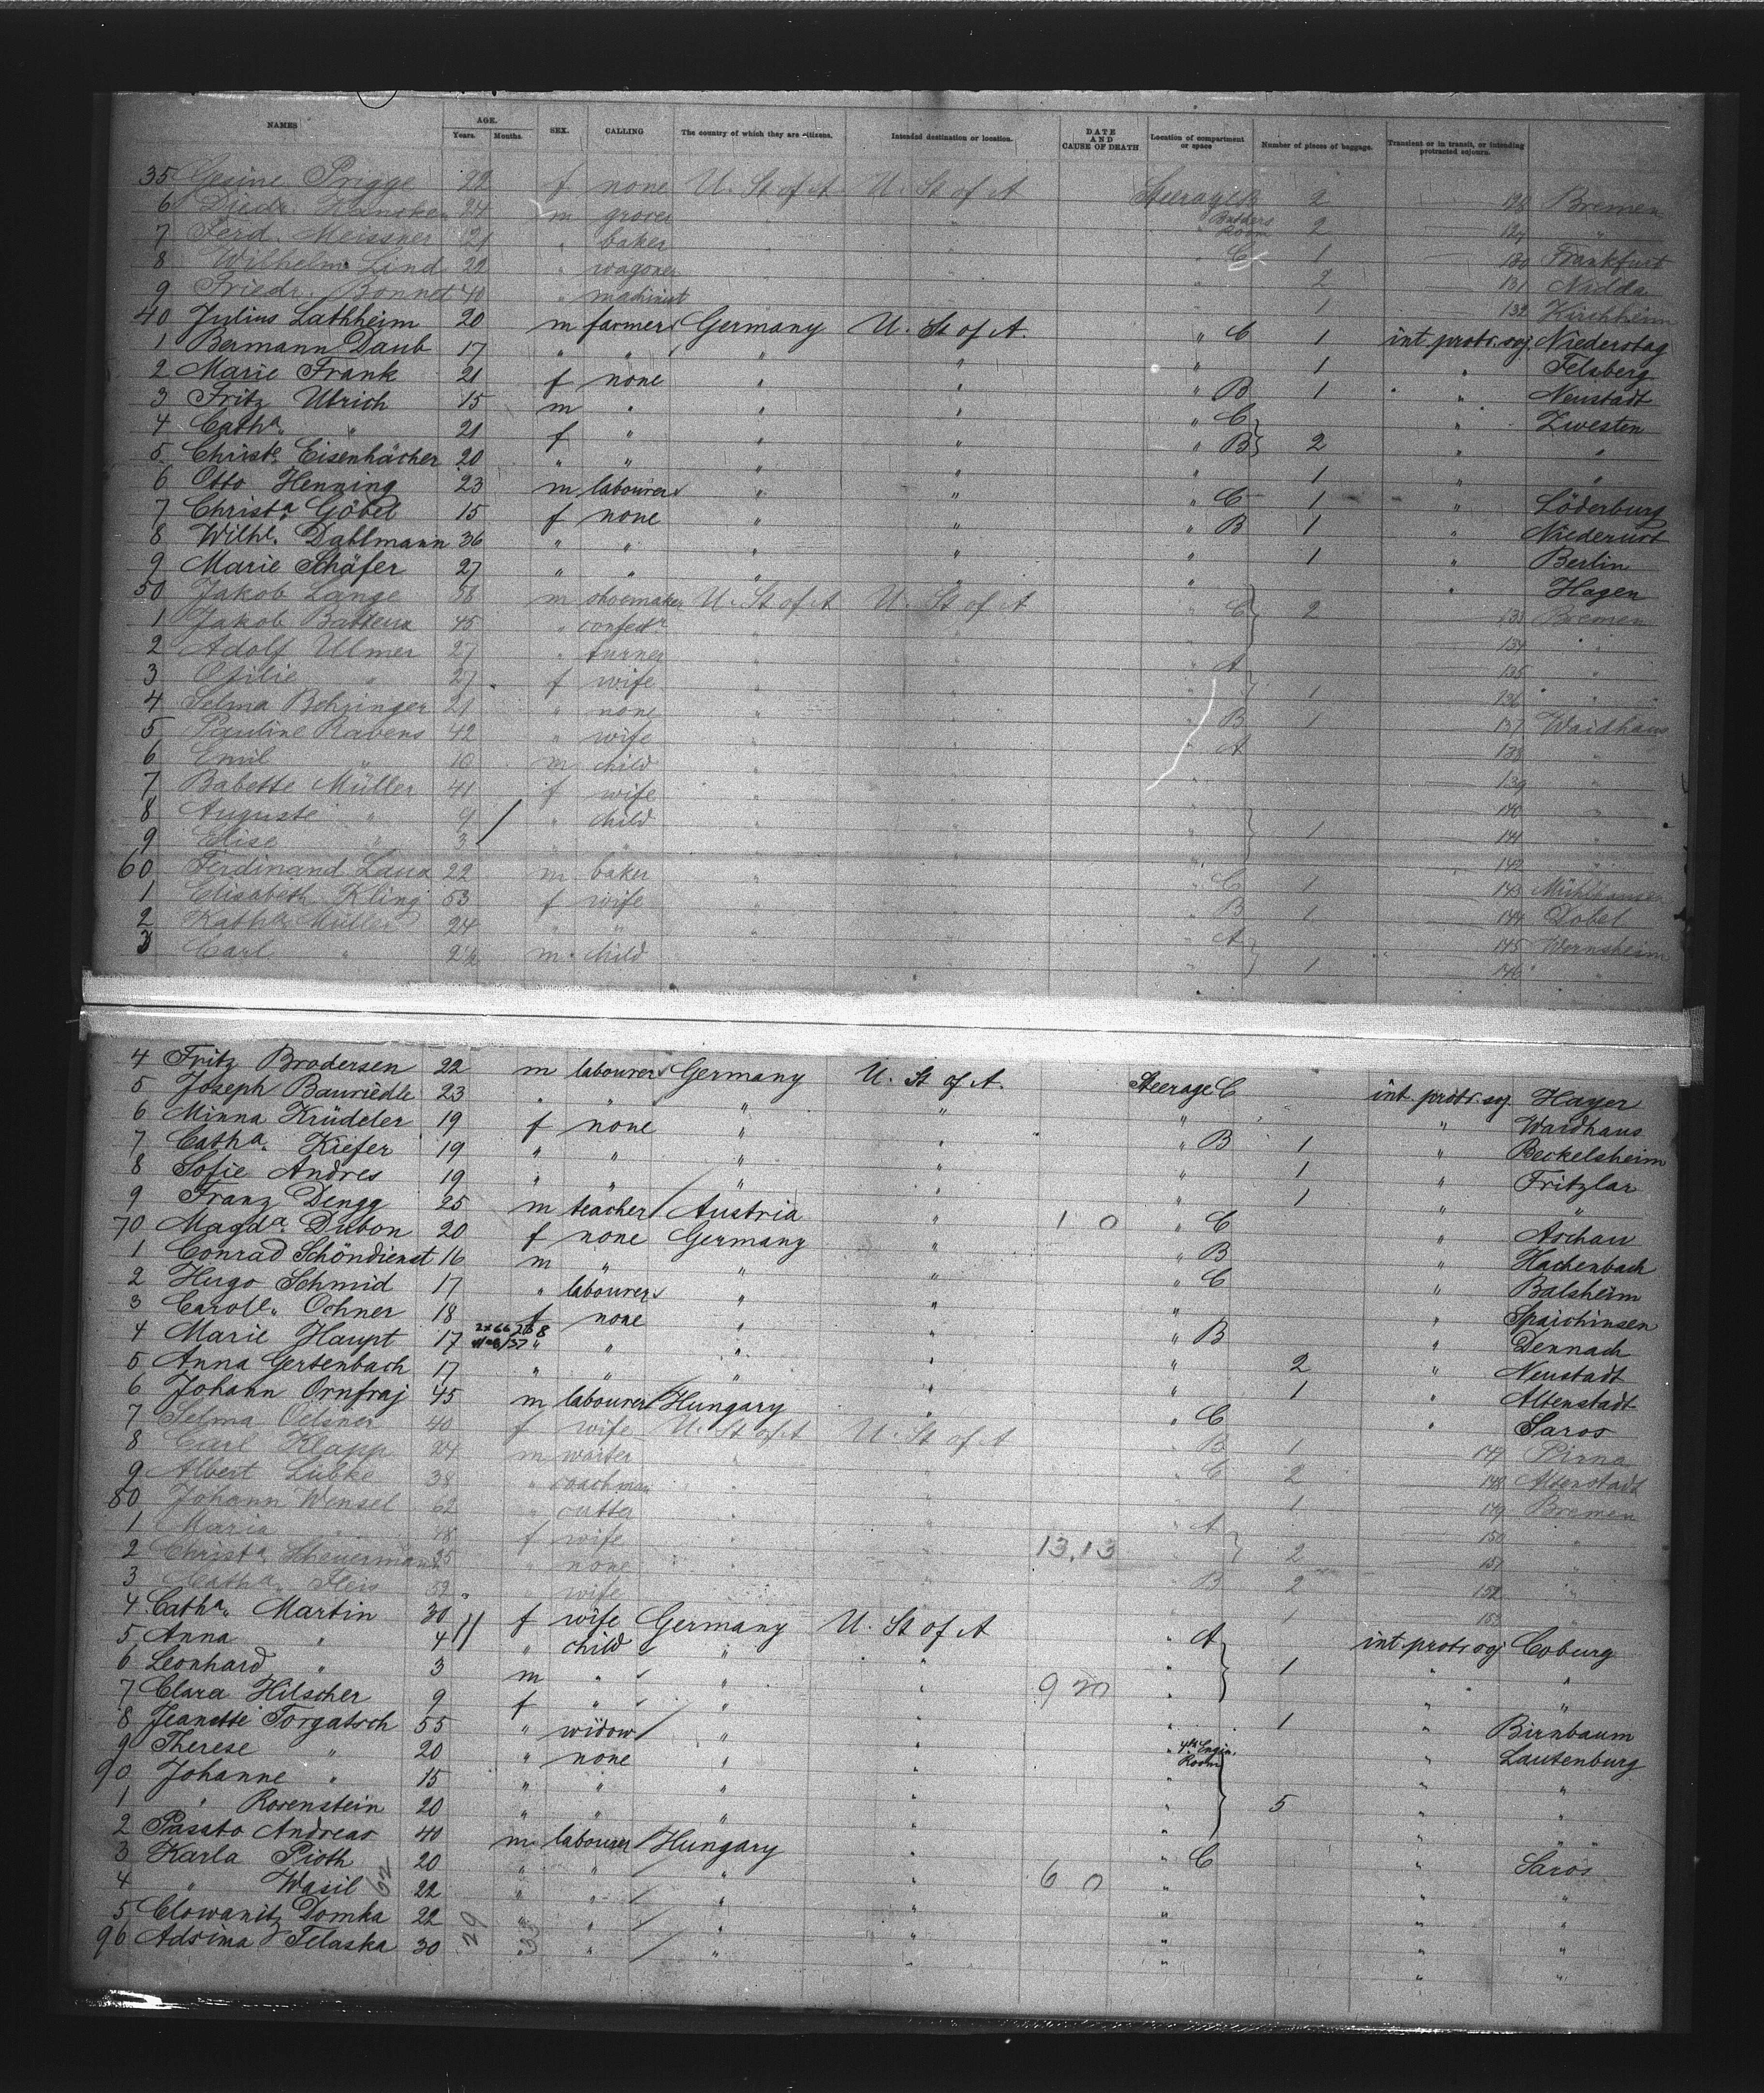 NAMES AGE. Years. Months. SEX. CALLING The country of which they are citizens. Intended destination or location. DATE AND CAUSE OF DEATH Location of compartment or space Number of pieces of baggage. Transient or in transit, or intending protracted sojourn.
35 Gesine Prigge 22 f none U. St of A U. St of A Steerage B 2 128 Bremen
6 Diedr. 24 m grocer " " " 2 129 "
7 Ferd. Meissner 21 " baker " " " C 1 130 Frankfurt
8 Wilhelm Lind 22 " wagoner " " " 2 131 Nidda
9 Friedr. Bonnet 40 " machinist " " " 1 132 Kirchheim
40 Julius Lathheim 20 m farmer Germany U. St of A. " C 1 int protr. soj. Niederotag
1 Bermann Daub 17 " " " " " 1 " Felsberg
2 Marie Frank 21 f none " " " B 1 " Neustadt
3 Fritz Ulrich 15 m " " " " C " Zwesten
4 Catha. " 21 f " " " " B 2 " "
5 Christe. Eisenhächer 20 " " " " " 1 " "
6 Otto Henning 23 m labourer " " " C 1 " Löderburg
7 Christa. Göbel 15 f none " " " B 1 " Niederurt
8 Wilhe. Dahlmann 36 " " " " " 1 " Berlin
9 Marie Schäfer 27 " " " " " " Hagen
50 Jakob Lange 58 m shoemaker U. St of A U. St of A " C 2 133 Bremen
1 Jakob Batteux 45 " confectr " " 134 "
2 Adolf Ulmer 27 " turner " " " A 135 "
3 Otilie " 27 f wife " " " 1 136 "
4 Selma Behringer 21 " none " " " B 1 137 Waidhaus
5 Pauline Rabens 42 " wife " " " A 138 "
6 Emil " 10 m child " " 139 "
7 Babette Müller 41 f wife " " 140 "
8 Auguste " 9 " child " " " 1 141 "
9 Elise " 3 " " " " 142 "
60 Ferdinand Laux 22 m baker " " " C 1 143 Mühlhausen
1 Elisabeth Kling 53 f wife " " " B 1 144 Dobel
2 Katha. Müller 24 " " " " " A 145 Wernsheim
3 Carl " 2½ m child " " " 1 146 "
4 Fritz Brodersen 22 m labourer Germany U. St of A. Steerage C int. protr. soj. Hayer
5 Joseph Bauriedle 23 " " " " " " Waidhaus
6 Minna Krüdeler 19 f none " " " B 1 " Beckelsheim
7 Catha. Kiefer 19 " " " " " 1 " Fritzlar
8 Sofie Andres 19 " " " " " 1 " "
9 Franz Dengg 25 m teacher Austria " 1 0 " C " Aschau
70 Magda. Dubon 20 f none Germany " " B " Hachenbach
1 Conrad Schöndienst 16 m " " " " C " Balsheim
2 Hugo Schmid 17 " labourer " " " " Spaichinsen
3 Caroll. Ochner 18 f none " " " B " Dennach
4 Marie Haupt 17 " " " " " 2 " Neustadt
5 Anna Gertenbach 17 " " " " " 1 " Altenstadt
6 Johann Ornfraj 45 m labourer Hungary " " C " Saros
7 Selma Oelsner 40 f wife U. St of A U. St of A " B 1 147 Pirna
8 Carl Klapp 24 m waiter " " " C 2 148 Altenstadt
9 Albert Lübke 38 " coachman " " " 1 149 Bremen
80 Johann Wensel 62 " cutter " " " A 150 "
1 Maria " f wife " " 13,13 " 2 151 "
2 Christa. Scheuermann 25 " none " " " B 2 152 "
3 Catha. Fleis 52 " wife " " " 1 153 "
4 Catha. Martin 30 f wife Germany U. St of A " A int. protr. soj Coburg
5 Anna " 4 " child " " " 1 " "
6 Leonhard " 3 m " " " 9 20 " " "
7 Clara Hilscher 9 f " " " " 1 " Birnbaum
8 Jeanette Torgatsch 55 " widow " " " 4th Engin. Room " Lautenburg
9 Therese " 20 " none " " " " "
90 Johanne " 15 " " " " " 5 " "
1 " Rosenstein 20 " " " " " " "
2 Passto Andreas 40 m labourer Hungary " " C " Saros
3 Karla Pioth 20 " " " " 6 0 " " "
4 " Wasil 62 22 " " " " " " "
5 Clowanitz Domka 22 29 " 33 " " " " " "
96 Adsima Telaska 30 " " " " " " "